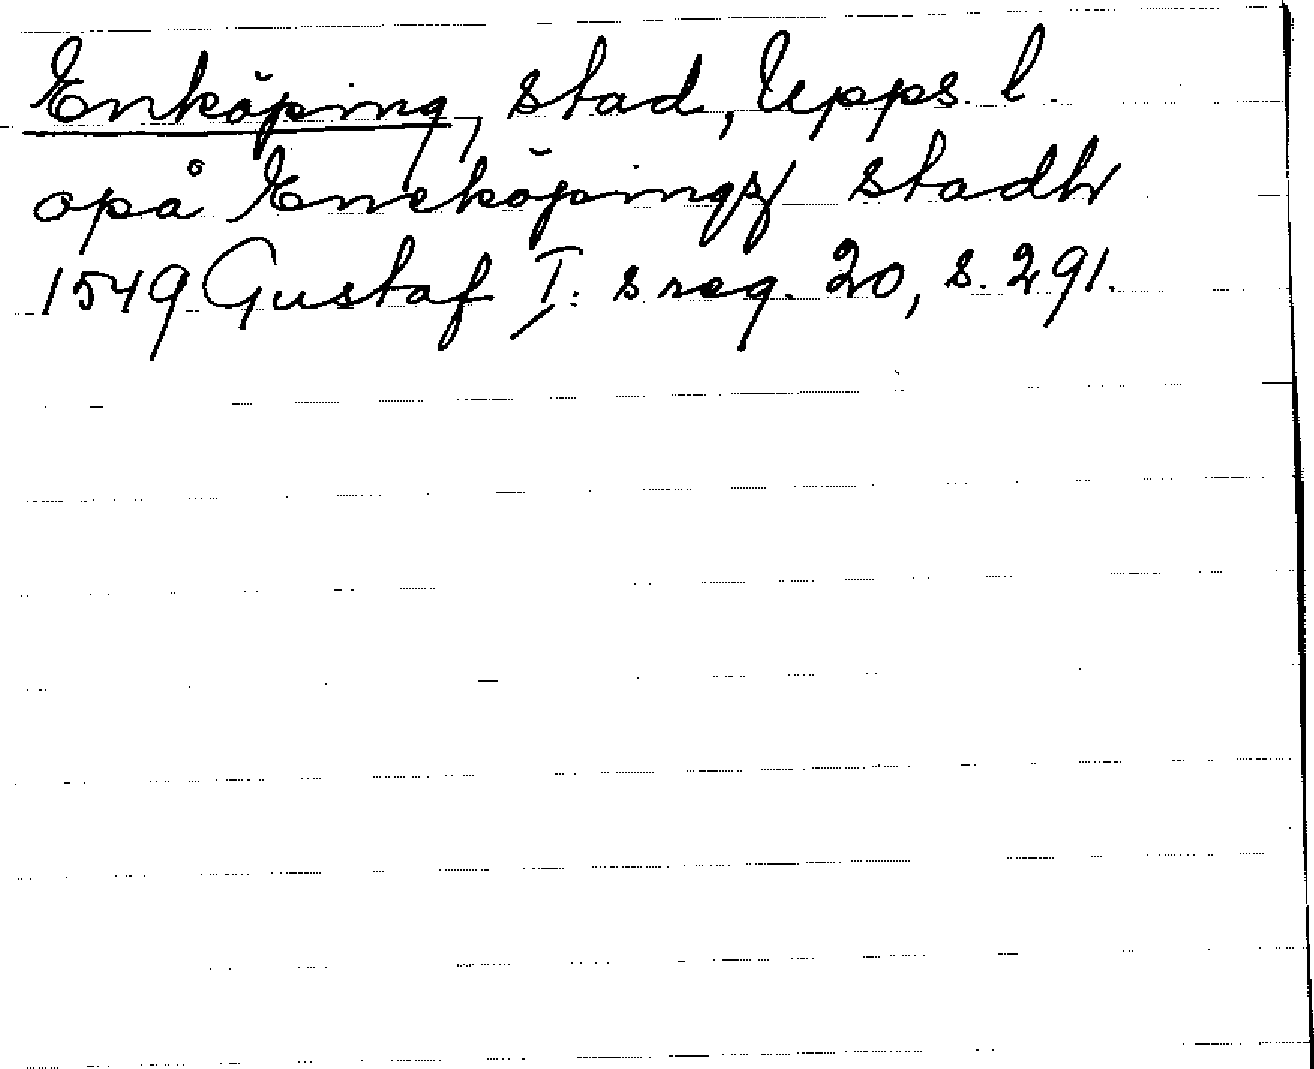 Enköping, stad, Upps. l.
opå Eneköpingx stadh
1549 Gustaf I:s reg. 20, s. 291.